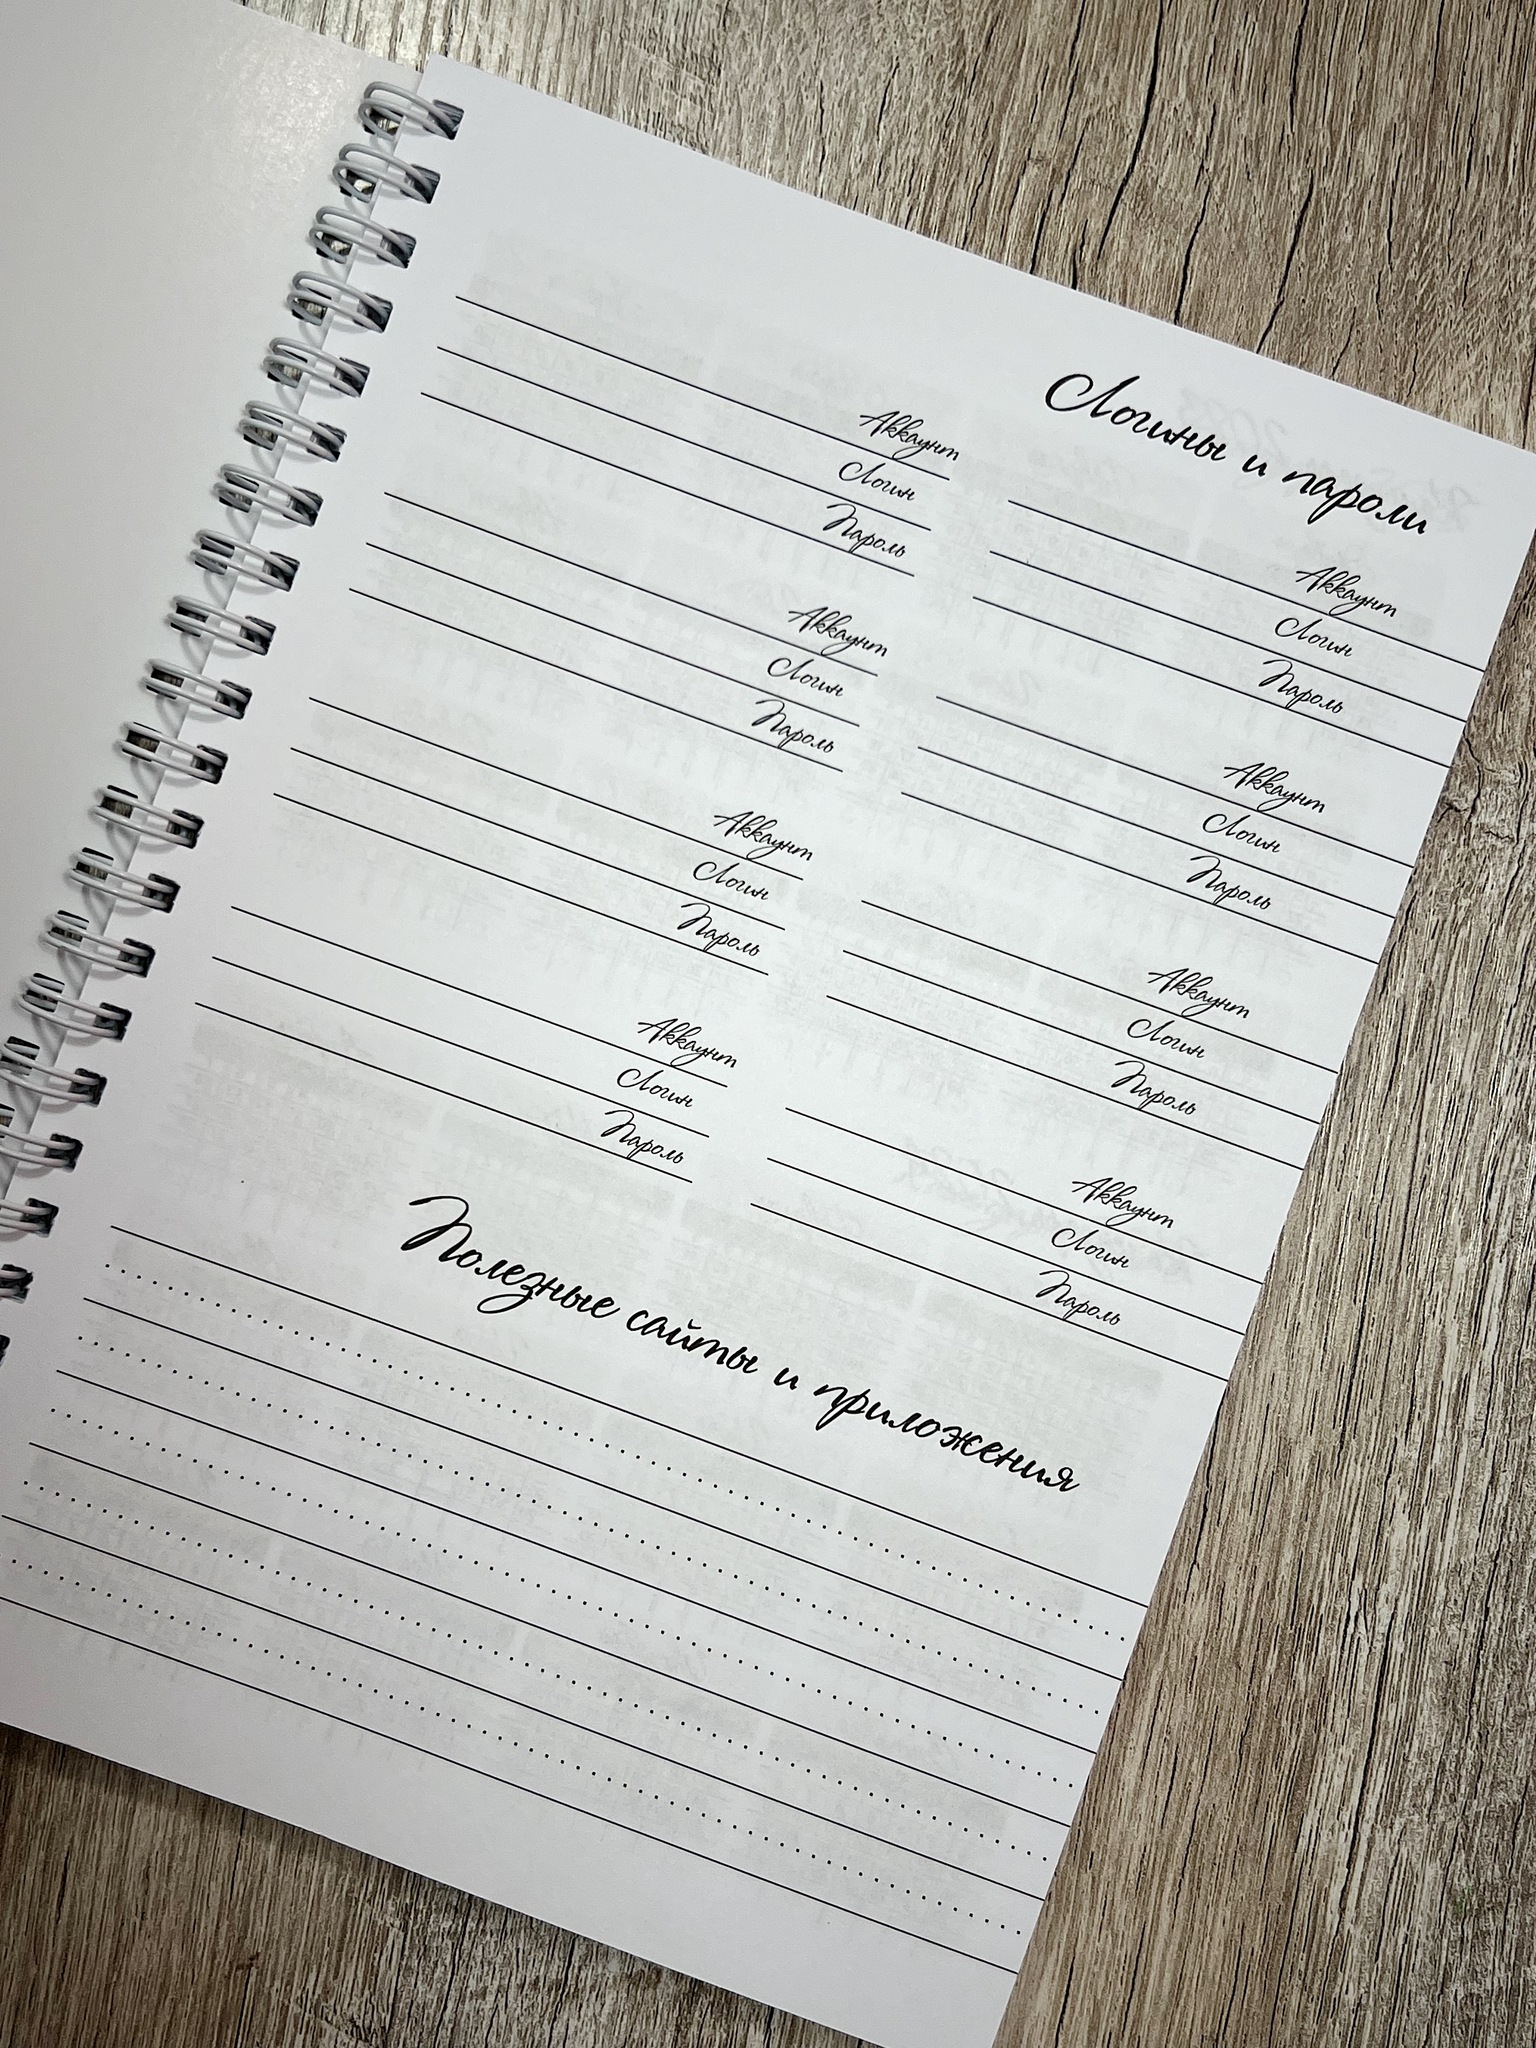 Логины и пароли
Аккаунт Аккаунт
Логин Логин
Пароль Пароль
Аккаунт Аккаунт
Логин Логин
Пароль Пароль
Аккаунт Аккаунт
Логин Логин
Пароль Пароль
Аккаунт Аккаунт
Логин Логин
Пароль Пароль
Полезные сайты и приложения